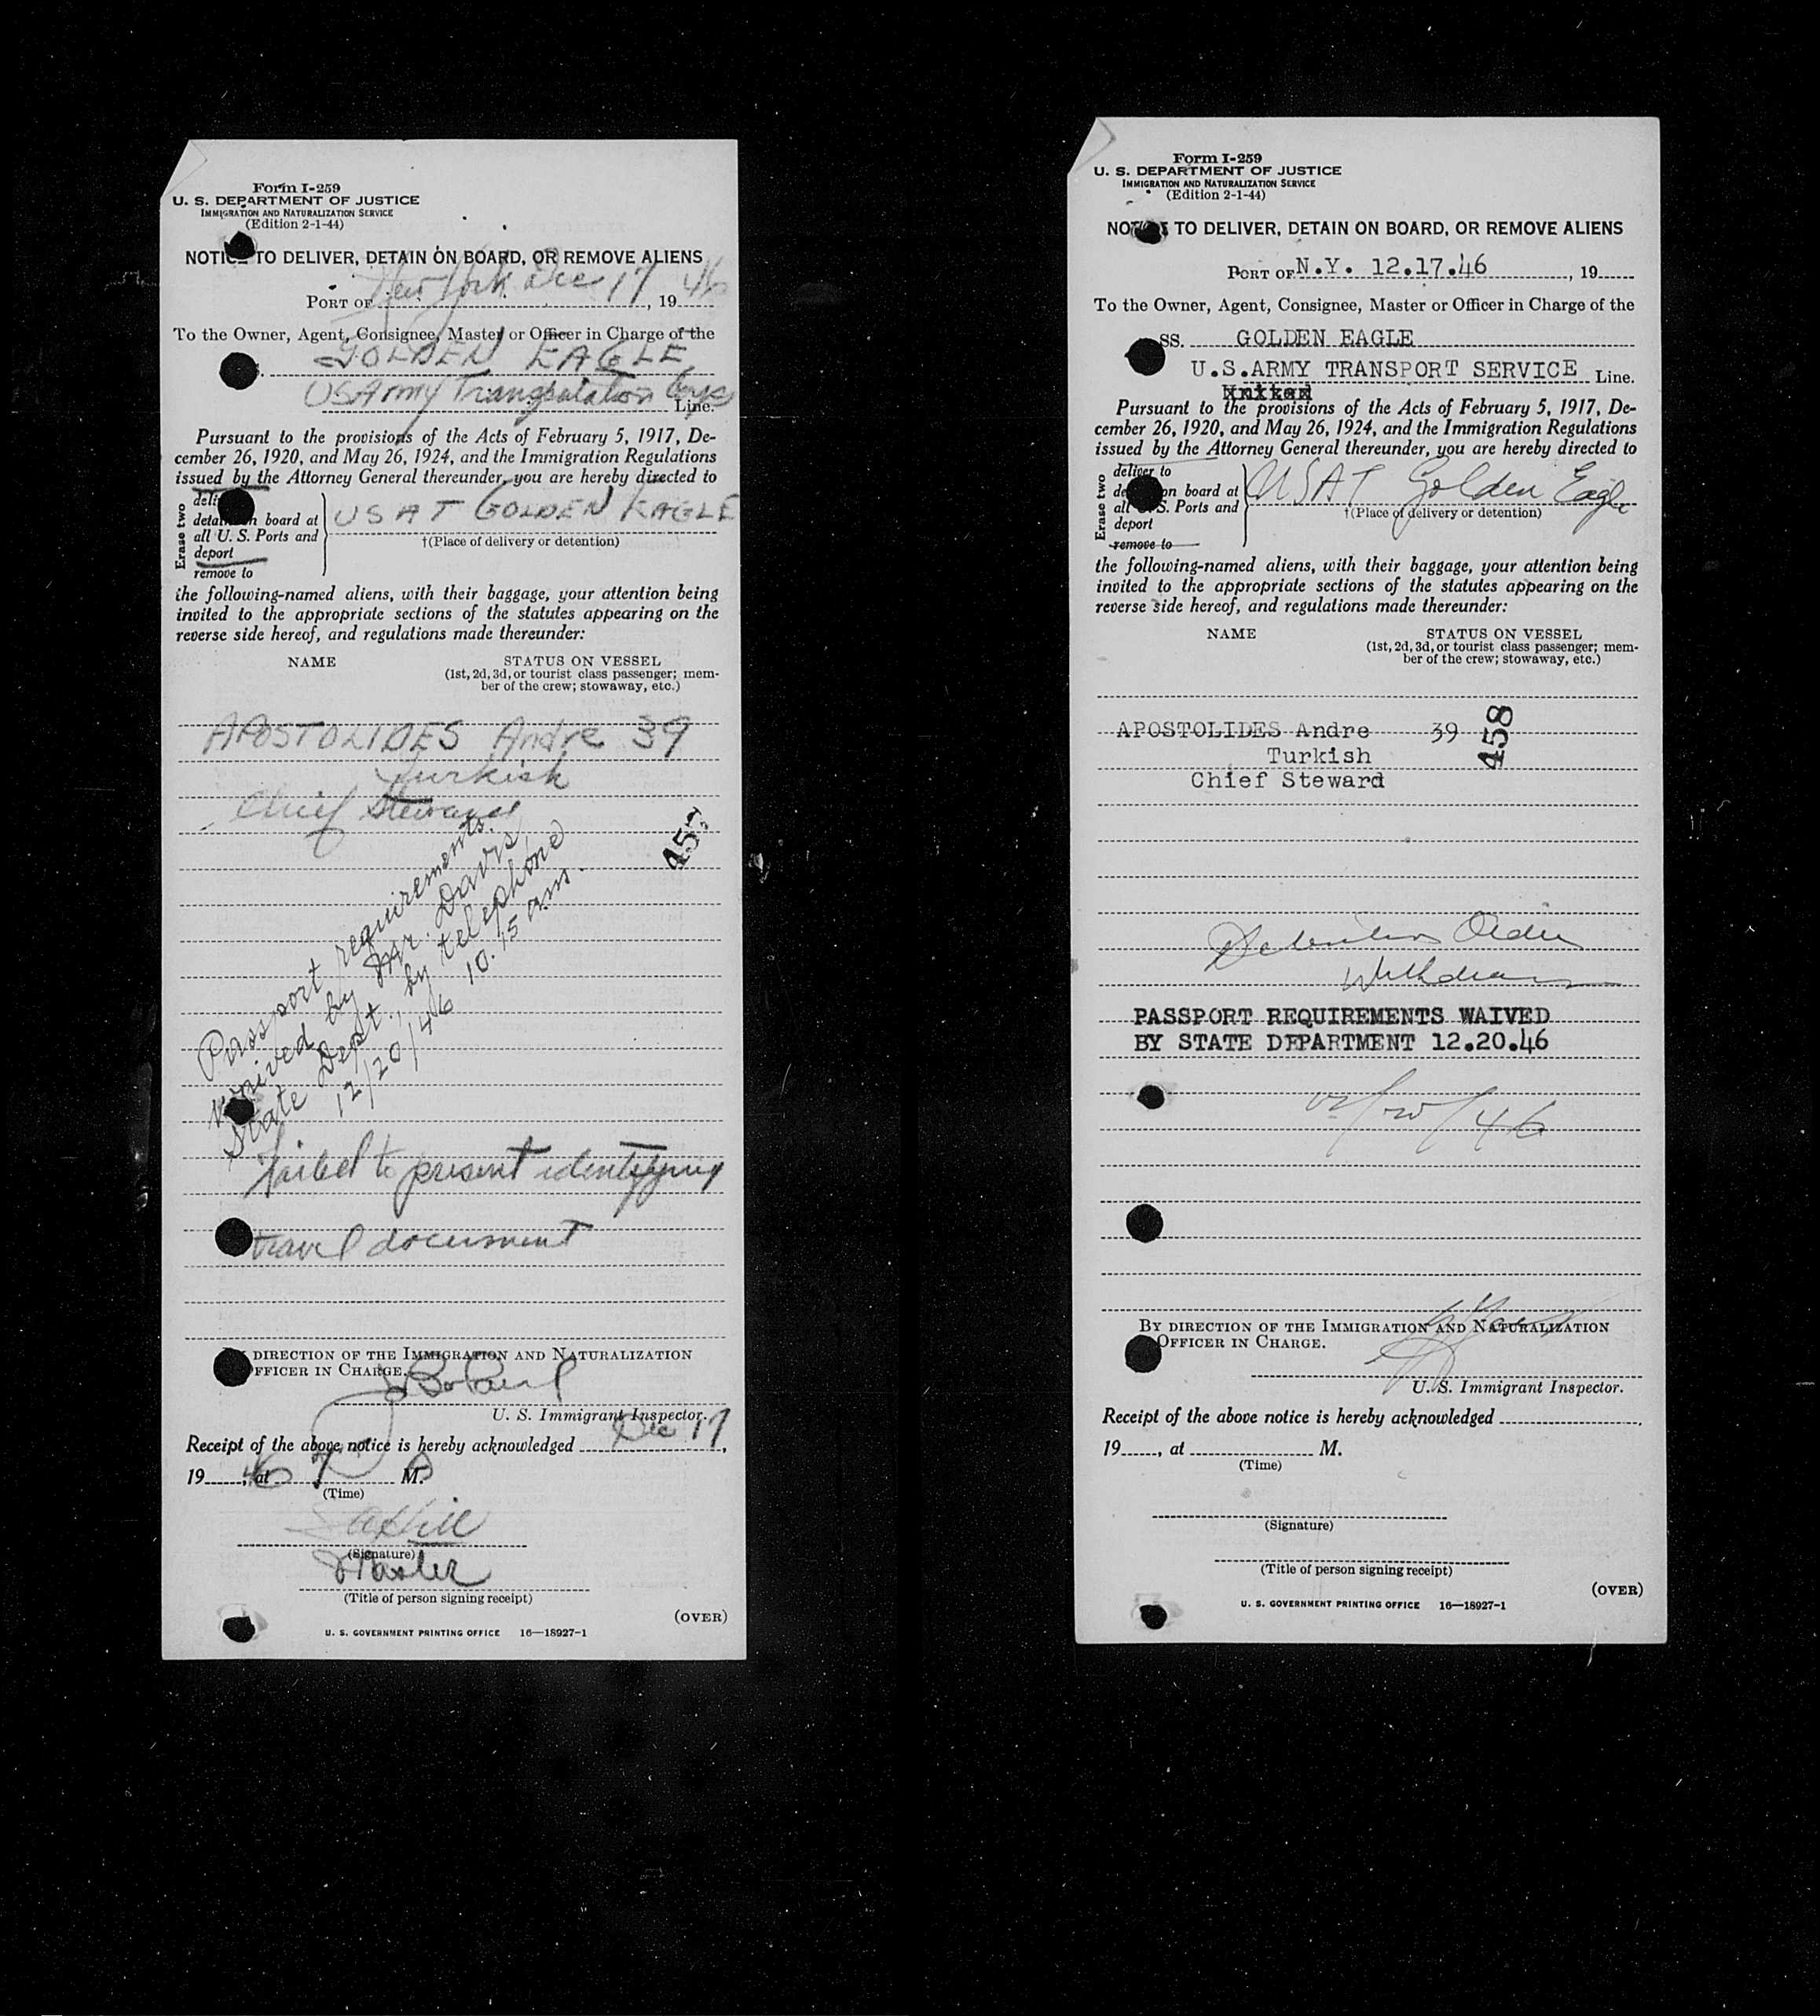 Form I-259
U. S. DEPARTMENT OF JUSTICE
IMMIGRATION AND NATURALIZATION SERVICE
(Edition 2-1-44)
NOTICE TO DELIVER, DETAIN ON BOARD, OR REMOVE ALIENS
PORT OF New York Dec 17, 19 46
To the Owner, Agent, Consignee, Master or Officer in Charge of the
GOLDEN EAGLE
US Army Transportation Corps Line.
Pursuant to the provisions of the Acts of February 5, 1917, De-
cember 26, 1920, and May 26, 1924, and the Immigration Regulations
issued by the Attorney General thereunder, you are hereby directed to
Erase two
deli
detain on board at
all U. S. Ports and
deport
remove to
USAT GOLDEN EAGLE
†(Place of delivery or detention)
the following-named aliens, with their baggage, your attention being
invited to the appropriate sections of the statutes appearing on the
reverse side hereof, and regulations made thereunder:
NAME STATUS ON VESSEL
(1st, 2d, 3d, or tourist class passenger; mem-
ber of the crew; stowaway, etc.)
APOSTOLIDES Andre 39
Turkish
Chief Steward
457
Passport requirements
waived by Mr. Davis,
State Dept., by telephone
12/20/46 10.15 am.
Failed to present identifying
travel document
DIRECTION OF THE IMMIGRATION AND NATURALIZATION
OFFICER IN CHARGE.
U. S. Immigrant Inspector.
Receipt of the above notice is hereby acknowledged Dec 17,
19 46, at 7 A M.
(Time)
Hill
(Signature)
Master
(Title of person signing receipt)
(OVER)
U. S. GOVERNMENT PRINTING OFFICE 16—18927-1
Form I-259
U. S. DEPARTMENT OF JUSTICE
IMMIGRATION AND NATURALIZATION SERVICE
(Edition 2-1-44)
NOTICE TO DELIVER, DETAIN ON BOARD, OR REMOVE ALIENS
PORT OF N.Y. 12.17.46, 19
To the Owner, Agent, Consignee, Master or Officer in Charge of the
SS. GOLDEN EAGLE
U.S.ARMY TRANSPORT SERVICE Line.
United
Pursuant to the provisions of the Acts of February 5, 1917, De-
cember 26, 1920, and May 26, 1924, and the Immigration Regulations
issued by the Attorney General thereunder, you are hereby directed to
Erase two
deliver to
detain on board at
all U. S. Ports and
deport
remove to
USAT Golden Eagle
†(Place of delivery or detention)
the following-named aliens, with their baggage, your attention being
invited to the appropriate sections of the statutes appearing on the
reverse side hereof, and regulations made thereunder:
NAME STATUS ON VESSEL
(1st, 2d, 3d, or tourist class passenger; mem-
ber of the crew; stowaway, etc.)
APOSTOLIDES Andre 39
Turkish
Chief Steward
458
Detention Order
Withdrawn
PASSPORT REQUIREMENTS WAIVED
BY STATE DEPARTMENT 12.20.46
12/20/46
BY DIRECTION OF THE IMMIGRATION AND NATURALIZATION
OFFICER IN CHARGE.
U. S. Immigrant Inspector.
Receipt of the above notice is hereby acknowledged
19, at M.
(Time)
(Signature)
(Title of person signing receipt)
(OVER)
U. S. GOVERNMENT PRINTING OFFICE 16—18927-1